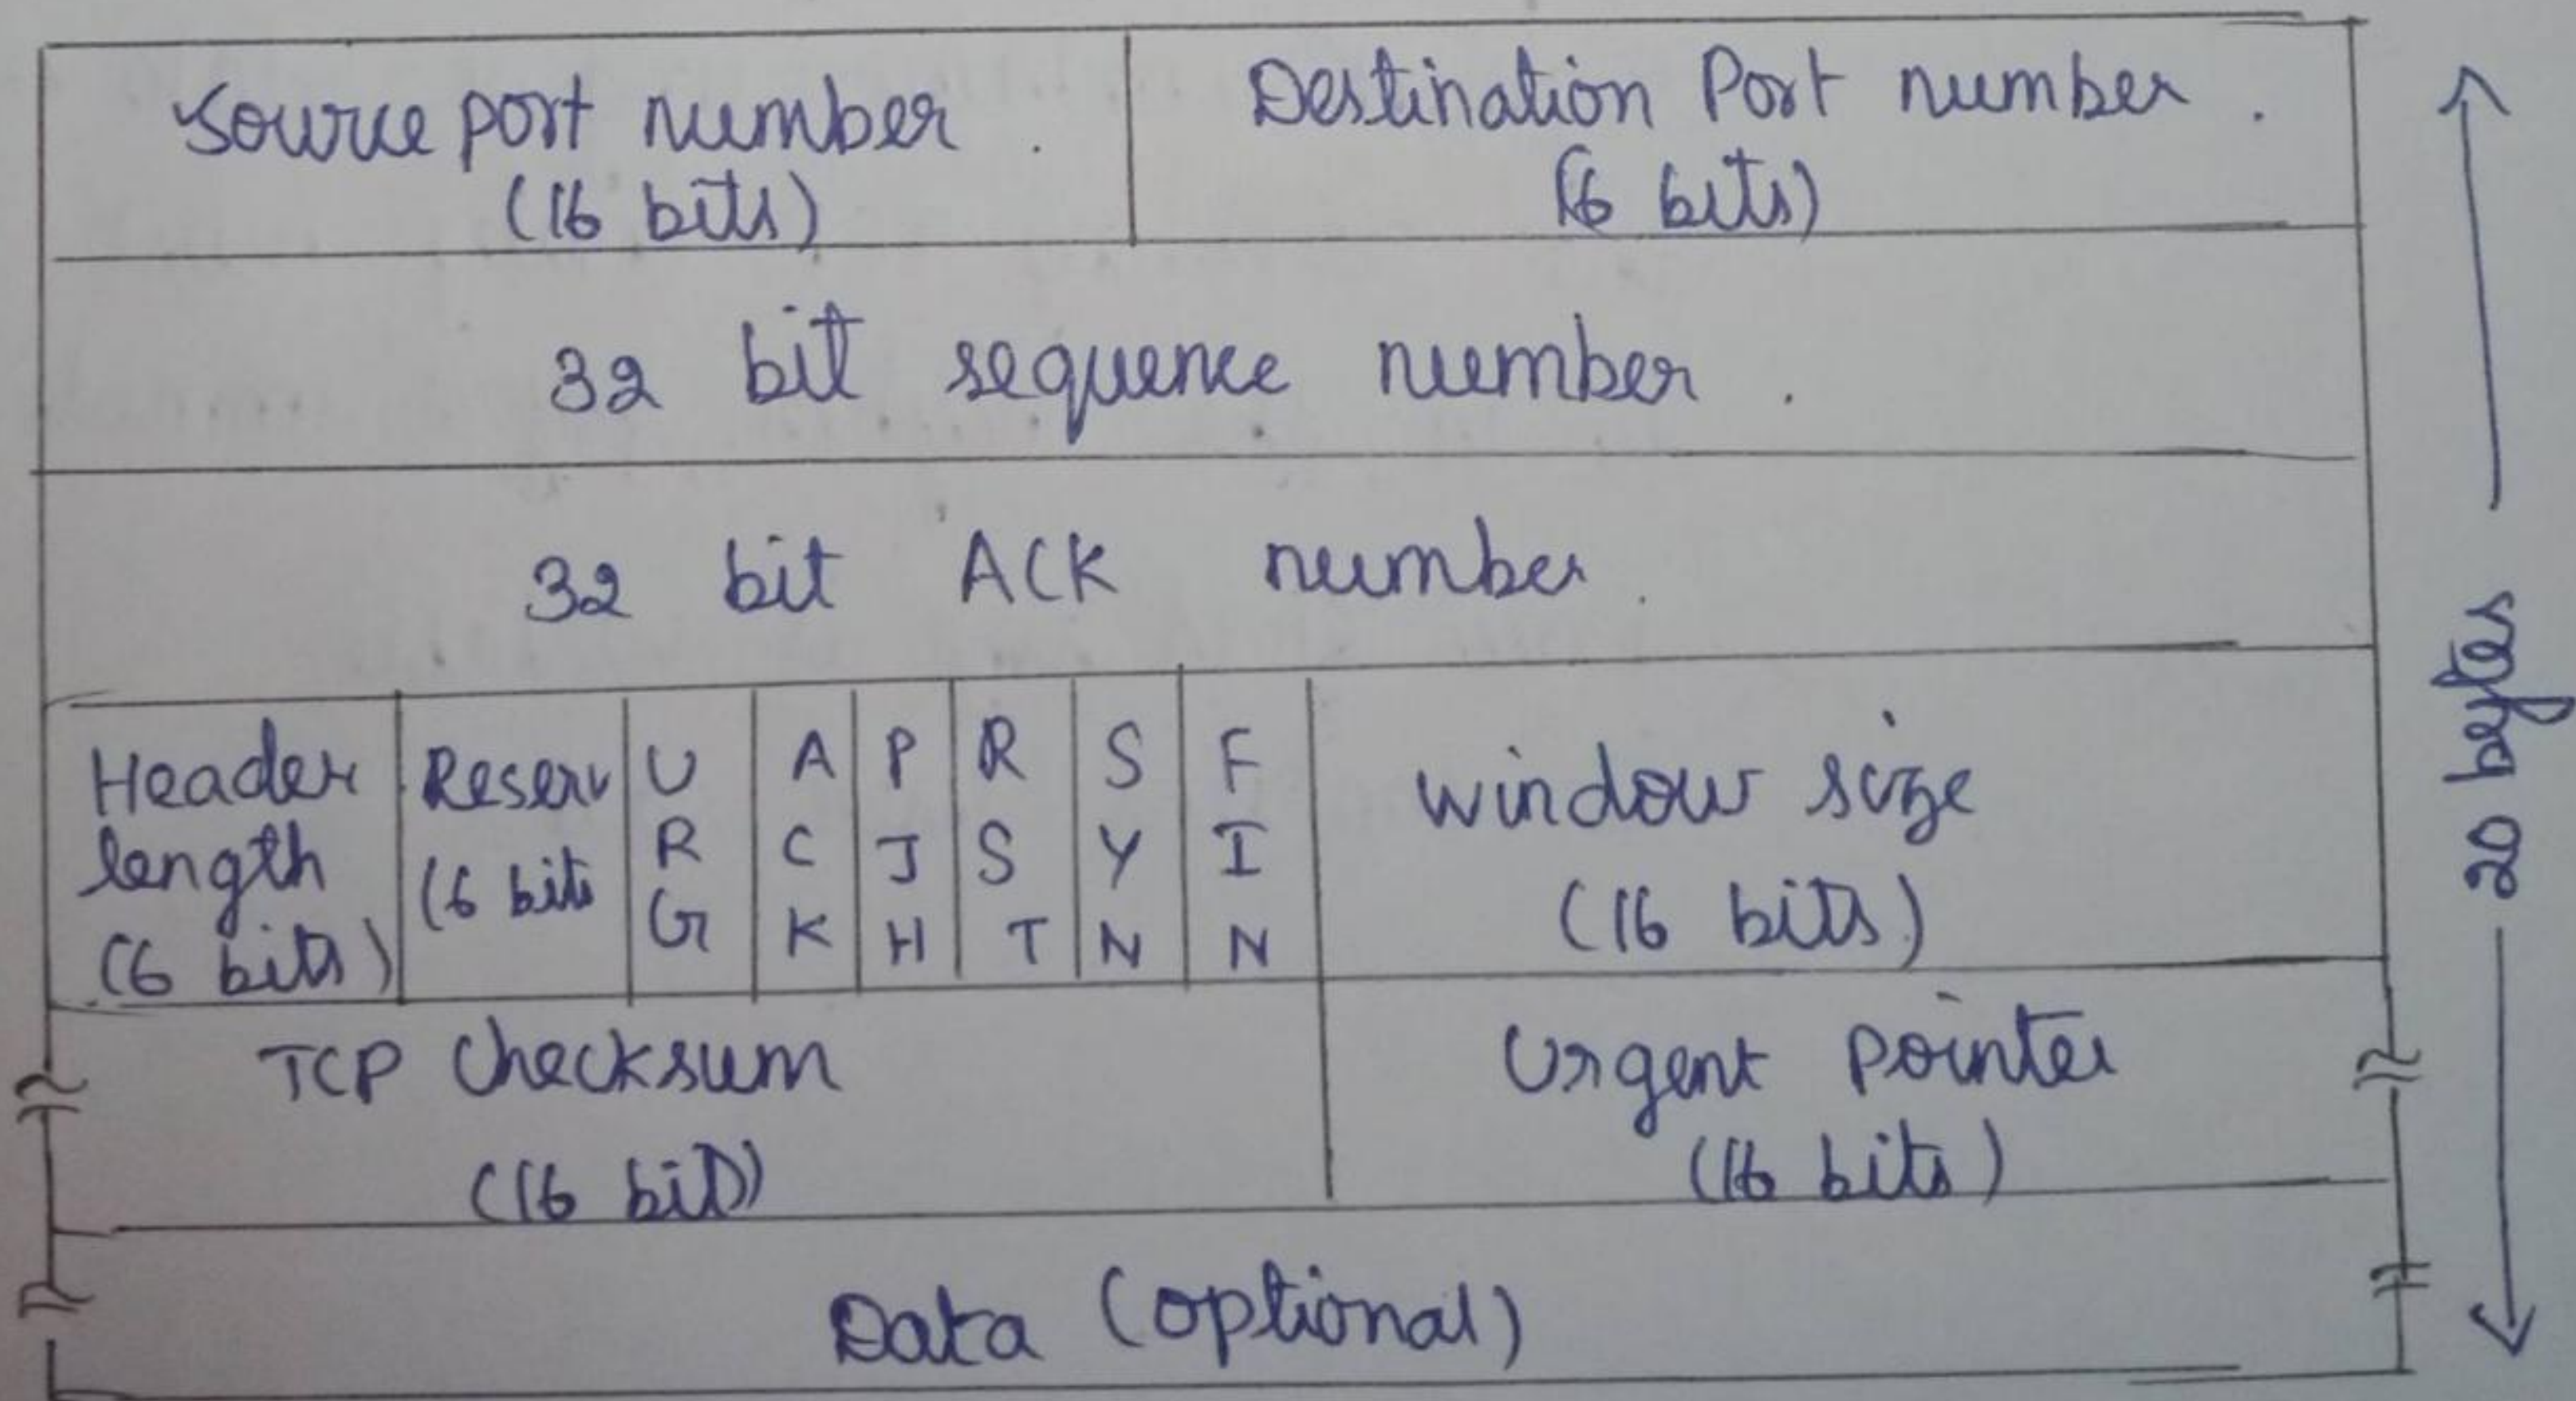 Source port number .
(16 bits)
Destination Port number .
(16 bits)
32 bit sequence number .
32 bit ACK number .
Header
length
(6 bits)
Reserv
(6 bits
U
R
G
A
C
K
P
J
H
R
S
T
S
Y
N
F
I
N
window size
(16 bits)
TCP Checksum
(16 bits)
Urgent Pointer
(16 bits)
Data (optional)
20 bytes